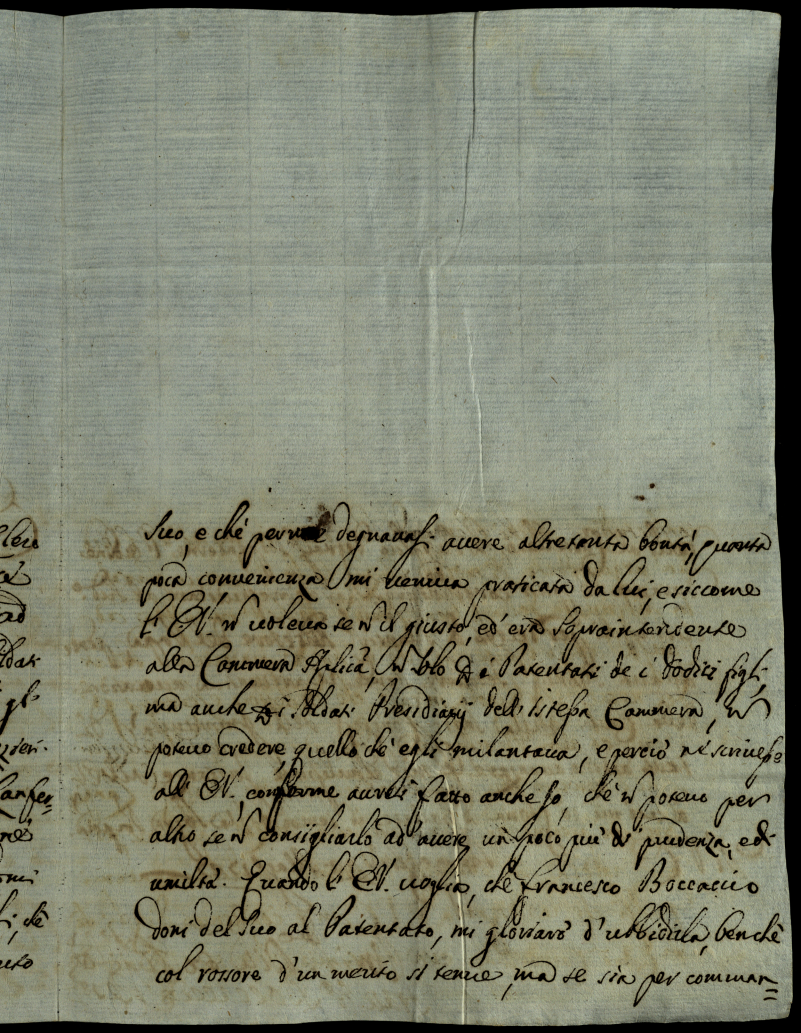 suo, e che per me degnavasi avere altretanta bontà, quanta
poca convenienza mi veniva praticata da lui, e siccome
l'EV. ñ voleva se ñ il giusto, ed' era sopraintendente
alla Cammera Aplica, ñ solo i Patentati de i dodici figli,
ma anche i soldati Presidiarij dell'istessa Cammera, ñ
potevo credere quello ch'egli milantava, e perciò ne scrivesse
all'EV., conforme avrei fatto anche Io, che ñ potevo per
altro se ñ consigliarlo ad'avere un poco più di prudenza, e di
umiltà. Quando l'EV. voglia, che Francesco Boccaccio
doni del suo al Patentato, mi gloriarò d'ubbidirla, benchè
col rossore d'un merito si tenue, ma se sia per comman=